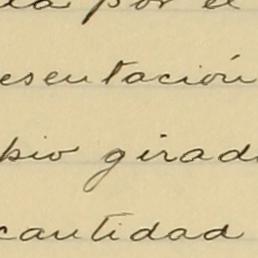 por el
esentación
bio girad
cantidad